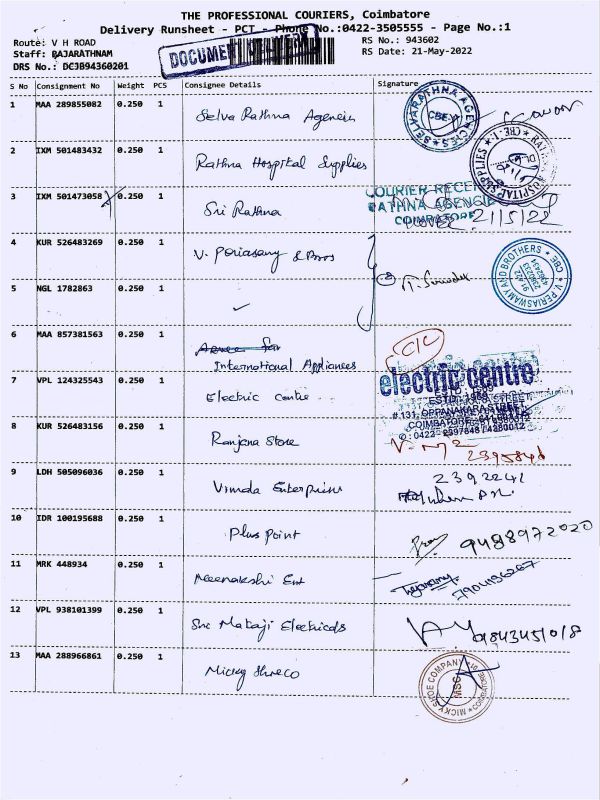 THE PROFESSIONAL COURIERS, Coimbatore
Delivery Runsheet - PCT - Phone No.:0422-3505555 - Page No.:1
Route: V H ROAD
RS No.: 943602
Staff: RAJARATHNAM
RS Date: 21-May-2022
DRS No.: DCJB94360201
DOCUMENT DELIVERY
S No Consignment No Weight PCS Consignee Details Signature
1 MAA 289855082 0.250 1 Selva Rathna Agencies
SELVARATHNA AGENCIES CBE-1
2 IXM 501483432 0.250 1 Rathna Hospital Supplies
RATHNA HOSPITAL SUPPLIES CBE-1
3 IXM 501473058 0.250 1 Sri Rathna
COURIER RECE
RATHNA AGENCIE
COIMBATORE
21/5/22
4 KUR 526483269 0.250 1 V. Periasamy & Bros
V. PERIASWAMY AND BROTHERS CBE
5 NGL 1782863 0.250 1
6 MAA 857381563 0.250 1 International Appliances
C/C
7 VPL 124325543 0.250 1 Electric centre
electric centre
ESTD. 1969
# 131, OPPANAKARA STREET
COIMBATORE
8 KUR 526483156 0.250 1 Ranjana Store
2395846
9 LDH 505096036 0.250 1 Vimala Enterprises
2392241
10 IDR 100195688 0.250 1 Plus point
9488972020
11 MRK 448934 0.250 1 Meenakshi Ent
12 VPL 938101399 0.250 1 Sri Mataji Electricals
9843451018
13 MAA 288966861 0.250 1 Micky Shoe co
MICKY SHOE COMPANY COIMBATORE
MSC